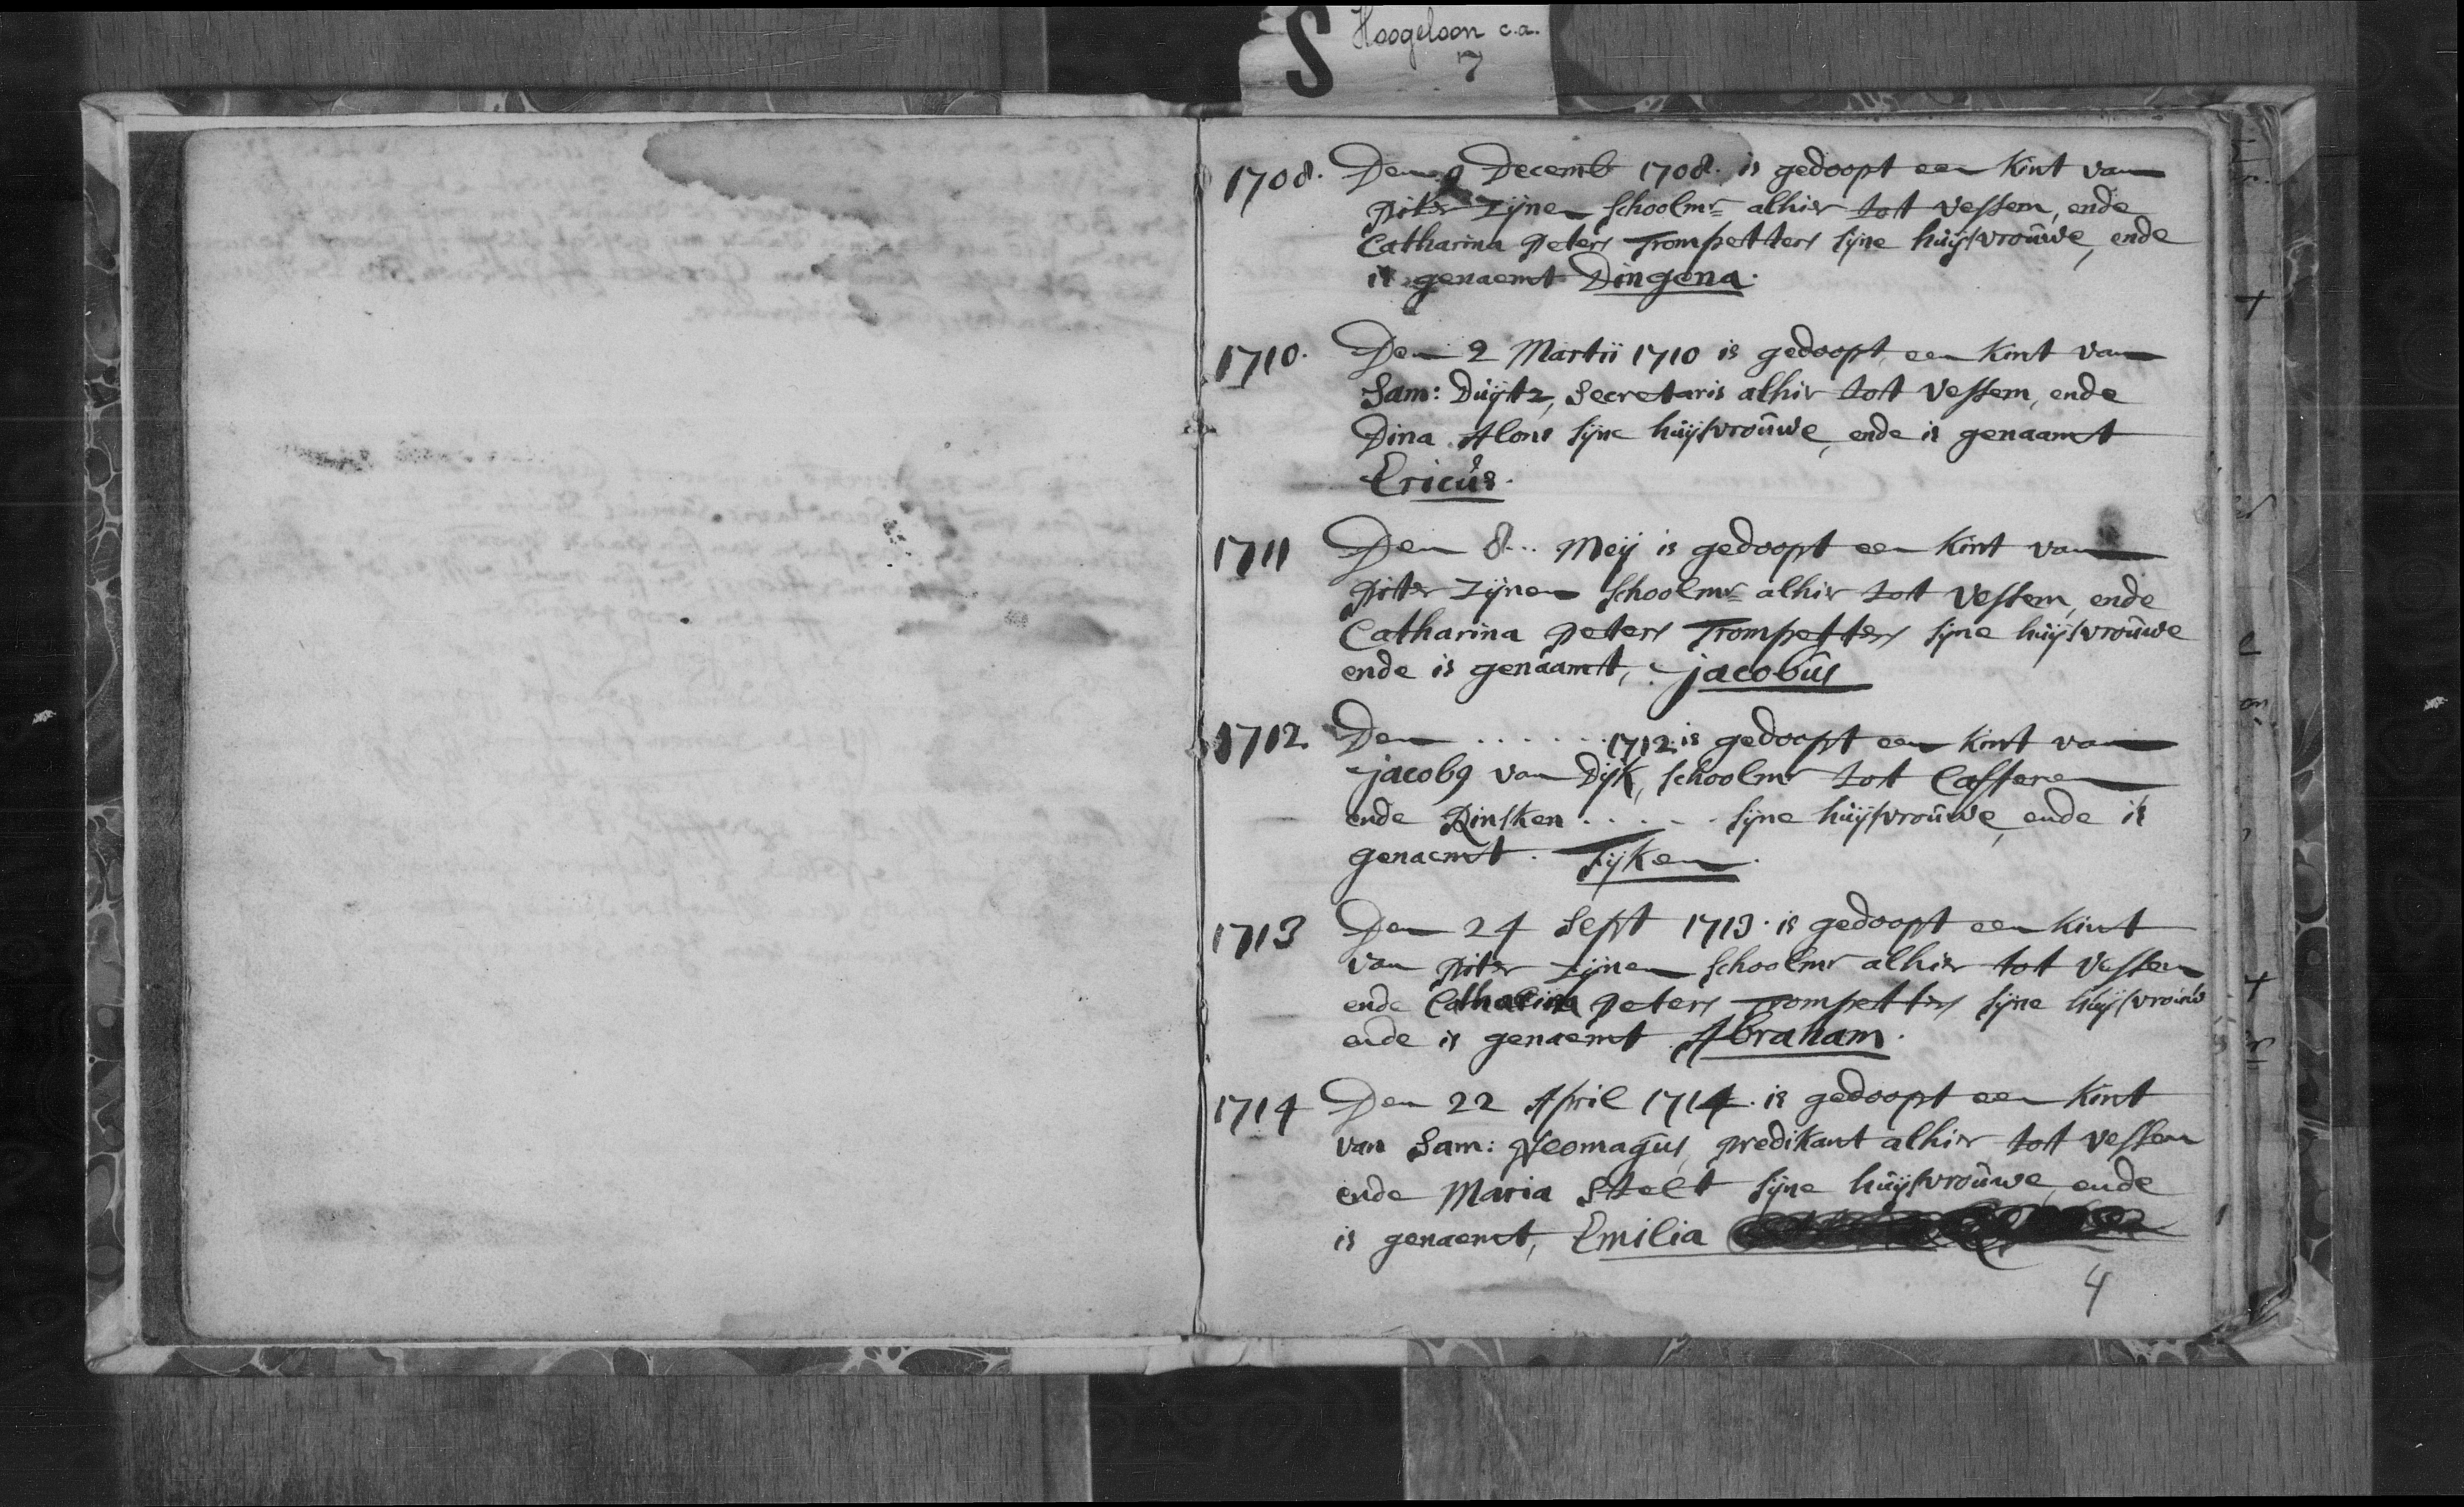 S Hoogeloon c.a.
7
1708. Den 9 Decemb 1708. is gedoopt een Kint van
Piter Zijnen schoolmr alhier tot Vessem, ende
Catharina Peters Trompetters sijne huijsvrouwe, ende
is genaemt Dingena.
1710. Den 2 Martii 1710 is gedoopt een Kint van
Sam: Duijtz, Secretaris alhier tott Vessem, ende
Dina Alons sijne huijsvrouwe, ende is genaamt
Ericus.
1711 Den 8... Meij is gedoopt een Kint van
Piter Zijnen schoolmr alhier tott Vessem, ende
Catharina Peters Trompetters sijne huijsvrouwe
ende is genaamt, jacobus
1712 Den ....... 1712 is gedoopt een Kint van
jacob9 van Dijk, schoolmr tot Casteren
ende Rinsken ..... sijne huijsvrouwe, ende is
genaemt. Tijken.
1713 Den 24 Sept 1713. is gedoopt een Kint
van Piter Zijnen schoolmr alhier tot Vessem
ende Catharina Peters Trompetters sijne huijsvrouw
ende is genaemt Abraham.
1714 Den 22 April 1714. is gedoopt een Kint
van Sam: Neomagus, predikant alhier tott Vessem
ende Maria Stelt sijne huijsvrouwe, ende
is genaemt, Emilia
4